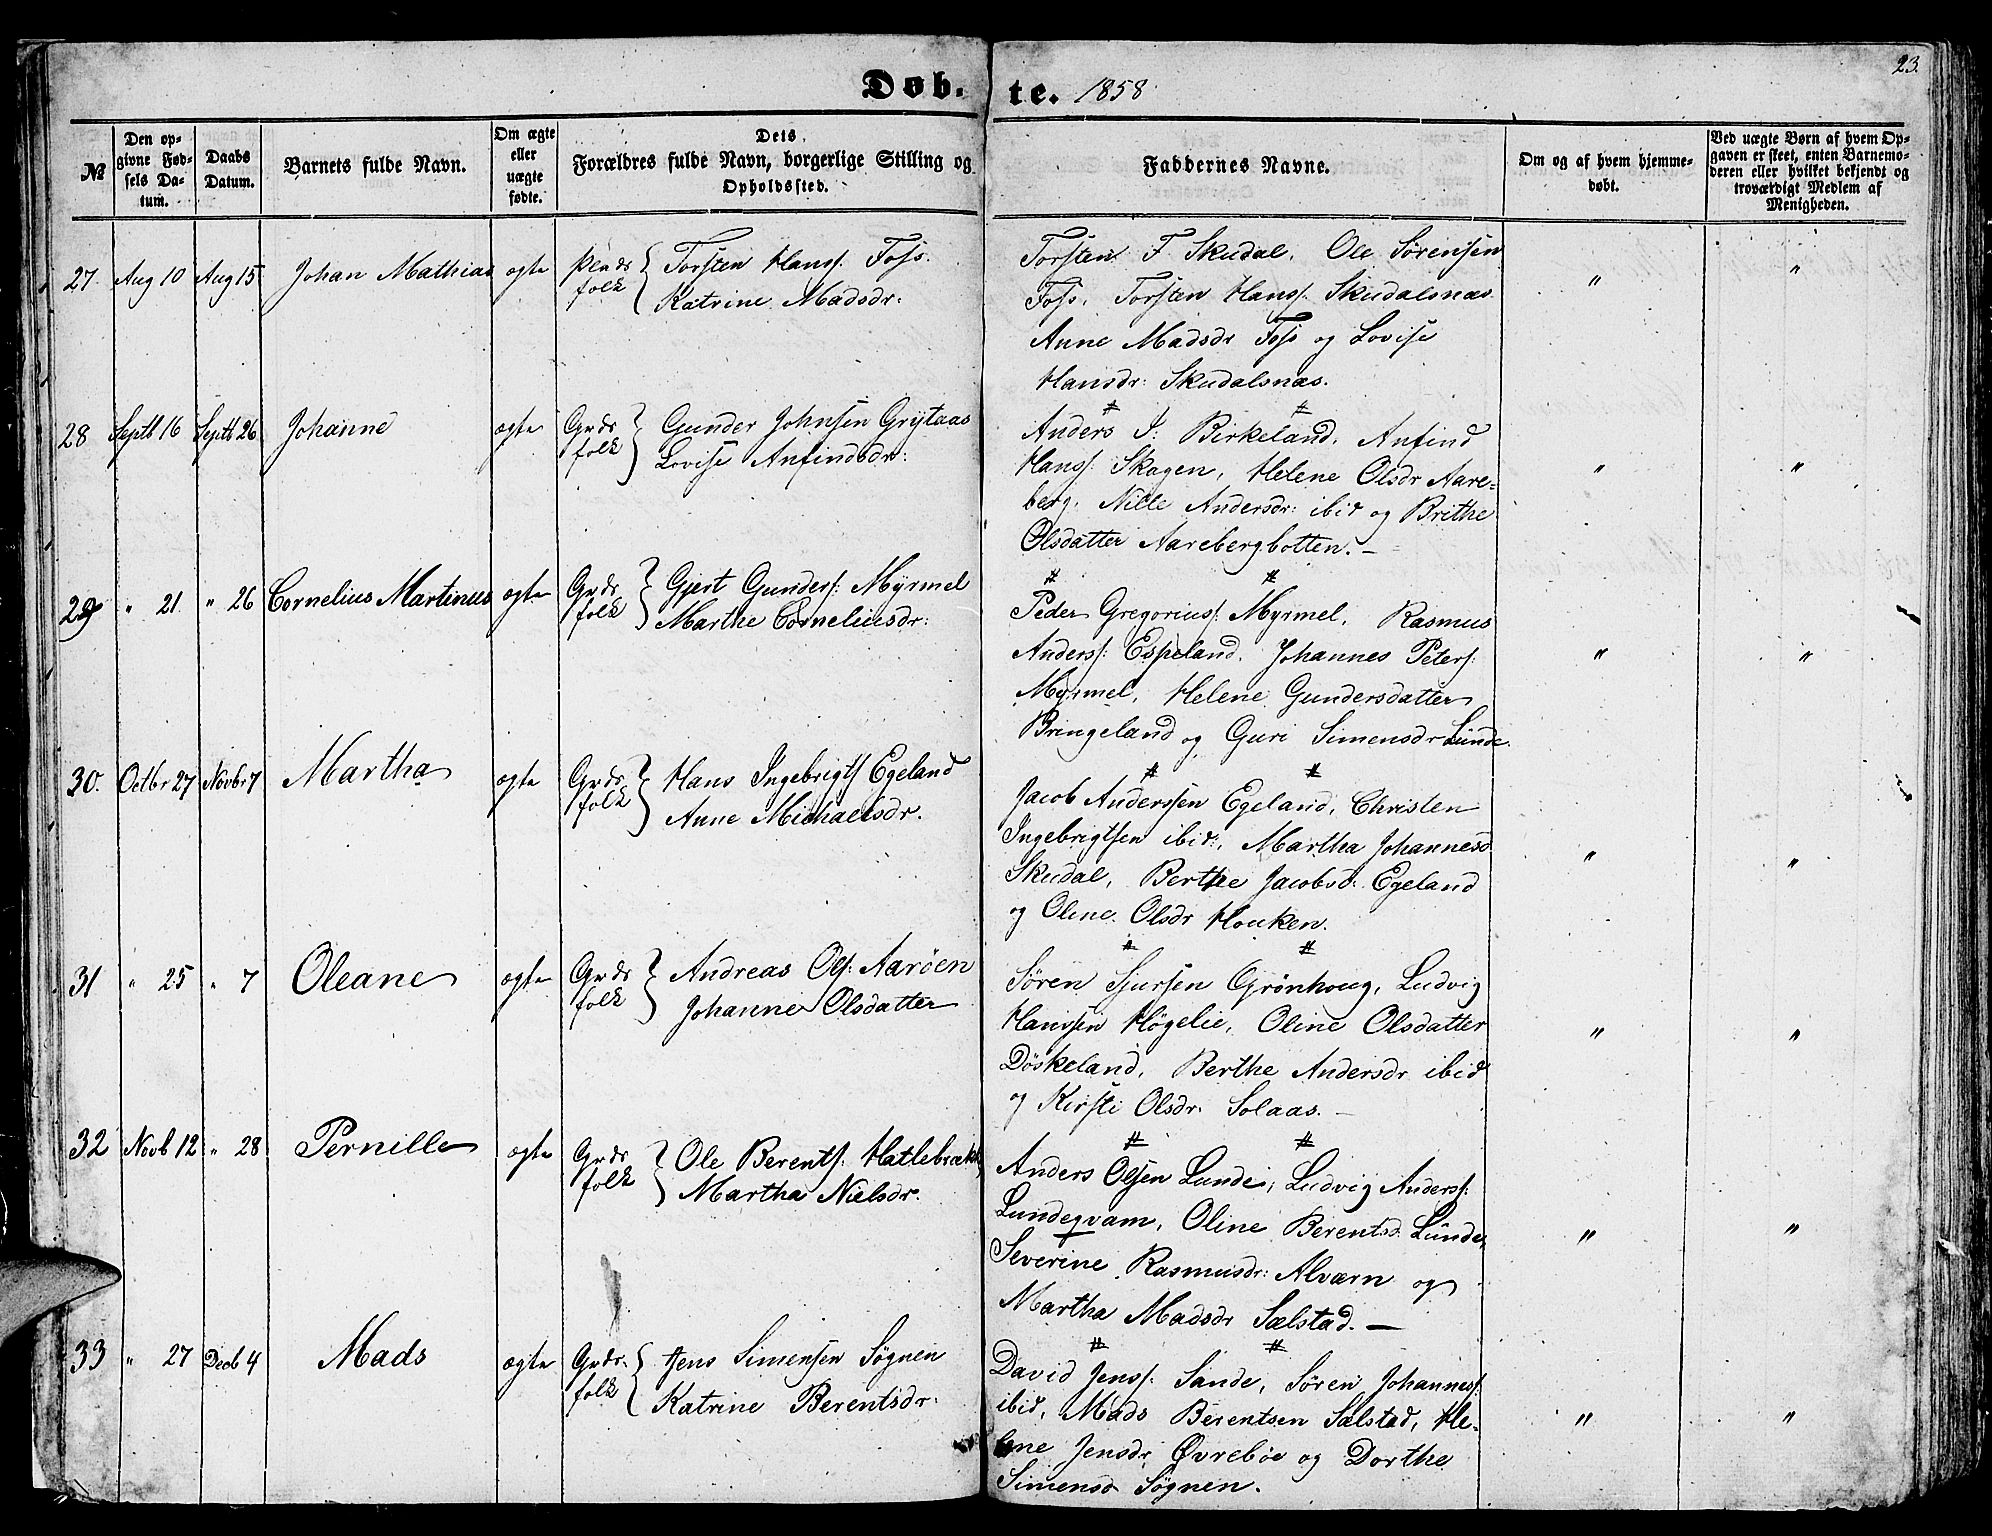 Døb- te. 1858 23.
№
Den op-
givne Fød-
sels Da-
tum.
Daabs
Datum.
Barnets fulde Navn.
Om ægte
eller
uægte
fødte.
Dets
Forældres fulde Navn, borgerlige Stilling og
Opholdssted.
Faddernes Navne.
Om og af hvem hjemme-
døbt.
Ved uægte Børn af hvem Op-
gaven er skeet, enten Barnemo-
deren eller hvilket bekjendt og
troværdigt Medlem af
Menigheden.
27. Aug 10 Aug 15 Johan Mathias ægte
folk
Torsten Hanss. Foss.
Katrine Madsdr:
Torsten F Skudal, Ole Sørensen
Foss, Torsten Hanss. Skudalsnæs
Anne Madsdr Foss og Lovise
Hansdr: Skudalsnæs.
" "
28 Septb 16 Septb 26 Johanne ægte
Grds
folk
Gunder Johnsen Grytaas
Lovise Anfindsdr:
Anders I: Birkeland, Anfind
Hanss: Skagen, Helene Olsdr Aare-
berg, Nille Andersdr: ibid og Brithe
Olsdatter Aarebergbotten. —
" "
29 " 21 " 26 Cornelius Martinus ægte
Grds
folk
Gjert Gunders: Myrmel
Marthe Corneliusdr:
Peder Gregorius: Myrmel, Rasmus
Anderss: Espeland, Johannes Peters:
Myrmel, Helene Gundersdatter
Bringeland og Guri Simensdr Lunde.
" "
30. Octbr 27 Novbr 7 Martha ægte
Grds
folk
Hans Ingebrigts Egeland
Anne Michaelsdr.
Jacob Anderssen Egeland, Christen
Ingebrigtsen ibid:, Martha Johannesd
Skudal, Berthe Jacobsd: Egeland
og Oline Olsdr Houken.
" "
31 " 25 " 7 Oleane ægte
Grds
folk
Andreas Ols: Aarøen
Johanne Olsdatter
Søren Sjursen Grønhoug, Ludvig
Hanssen Høgelie, Oline Olsdatter
Døskeland, Berthe Andersdr ibid
og Kirsti Olsdr. Solaas. —
" "
32 Novb 12 " 28 Pernille ægte
Grds
folk
Ole Berents: Hatlebrækk
Martha Nielsdr.
Anders Olsen Lunde, Ludvig Anderss:
Lundeqvam, Oline Berentsd: Lunde,
Severine Rasmusdr: Alværn og
Martha Madsdr Sælstad. —
" "
33 " 27 Decb 4 Mads ægte
Grds.
folk
Jens Simensen Søgnen
Katrine Berentsdr.
David Jenss: Sande, Søren Johanness:
ibid, Mads Berentsen Sælstad, He-
lene Jensdr Øvrebøe og Dorthe
Simensd Søgnen.
" "